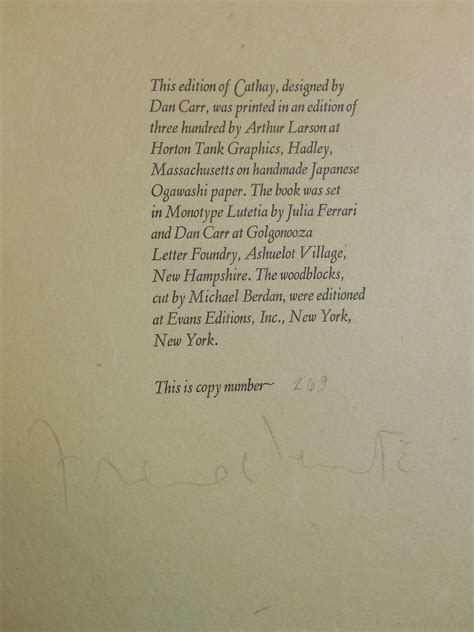 This edition of Cathay, designed by
Dan Carr, was printed in an edition of
three hundred by Arthur Larson at
Horton Tank Graphics, Hadley,
Massachusetts on handmade Japanese
Ogawashi paper. The book was set
in Monotype Lutetia by Julia Ferrari
and Dan Carr at Golgonooza
Letter Foundry, Ashuelot Village,
New Hampshire. The woodblocks,
cut by Michael Berdan, were editioned
at Evans Editions, Inc., New York,
New York.
This is copy number~ 269